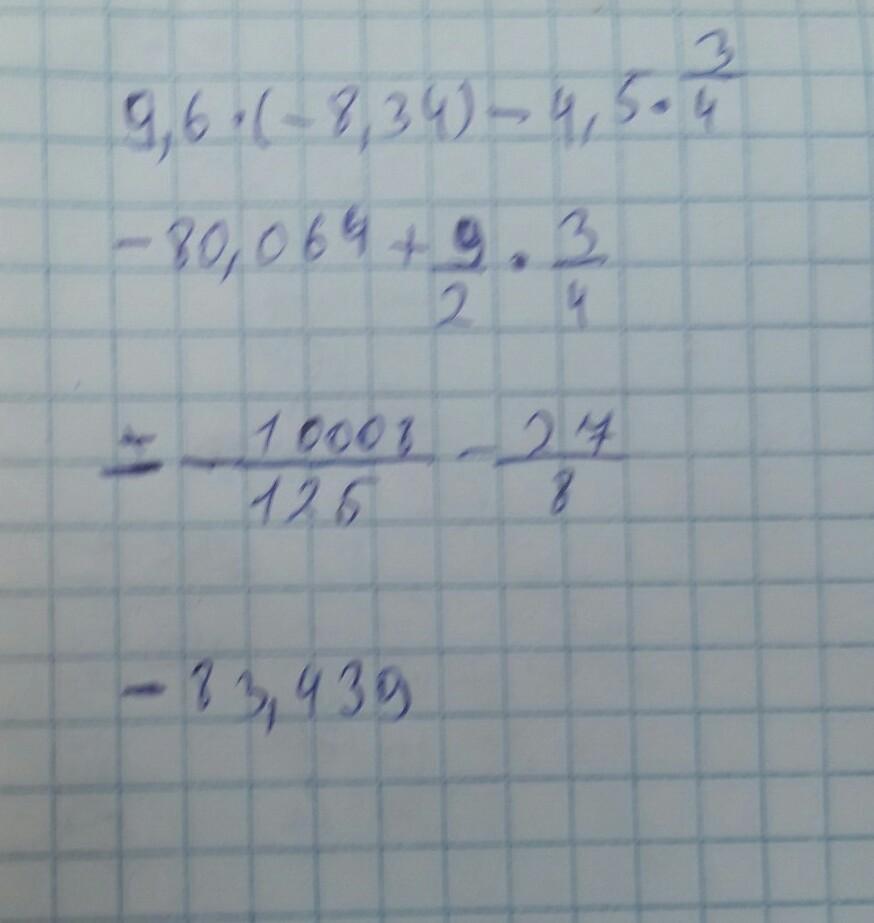 9,6·(-8,34)-4,5·3/4
-80,064+9/2·3/4
=-10008/125-27/8
-83,439